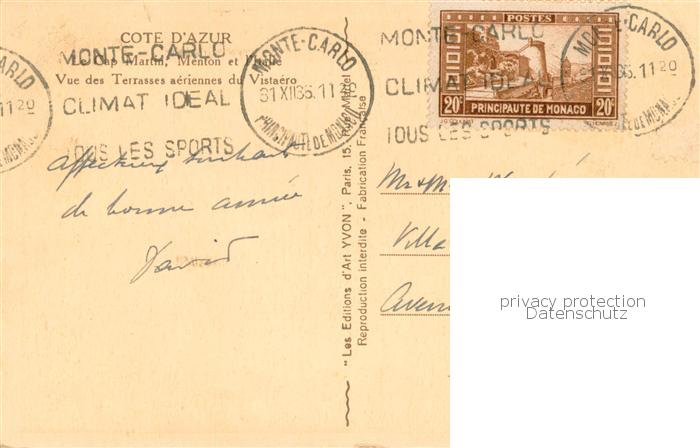 COTE D'AZUR
Le Cap Martin, Menton et l'Italie
Vue des Terrasses aériennes du Vistaéro
MONTE-CARLO
CLIMAT IDEAL
TOUS LES SPORTS
MONTE-CARLO
31 XII 36. 11 20
PRINCIPAUTÉ DE MONACO
MONTE-CARLO
CLIMAT IDEAL
TOUS LES SPORTS
POSTES
20c PRINCIPAUTE DE MONACO 20c
MONTE-CARLO
36. 11 20
CARLO
11 20
DE MONA
affectueux souhaits
de bonne année
"Les Editions d'Art YVON", Paris, 15, Rue Martel
Reproduction interdite - Fabrication Française
Villa
privacy protection
Datenschutz